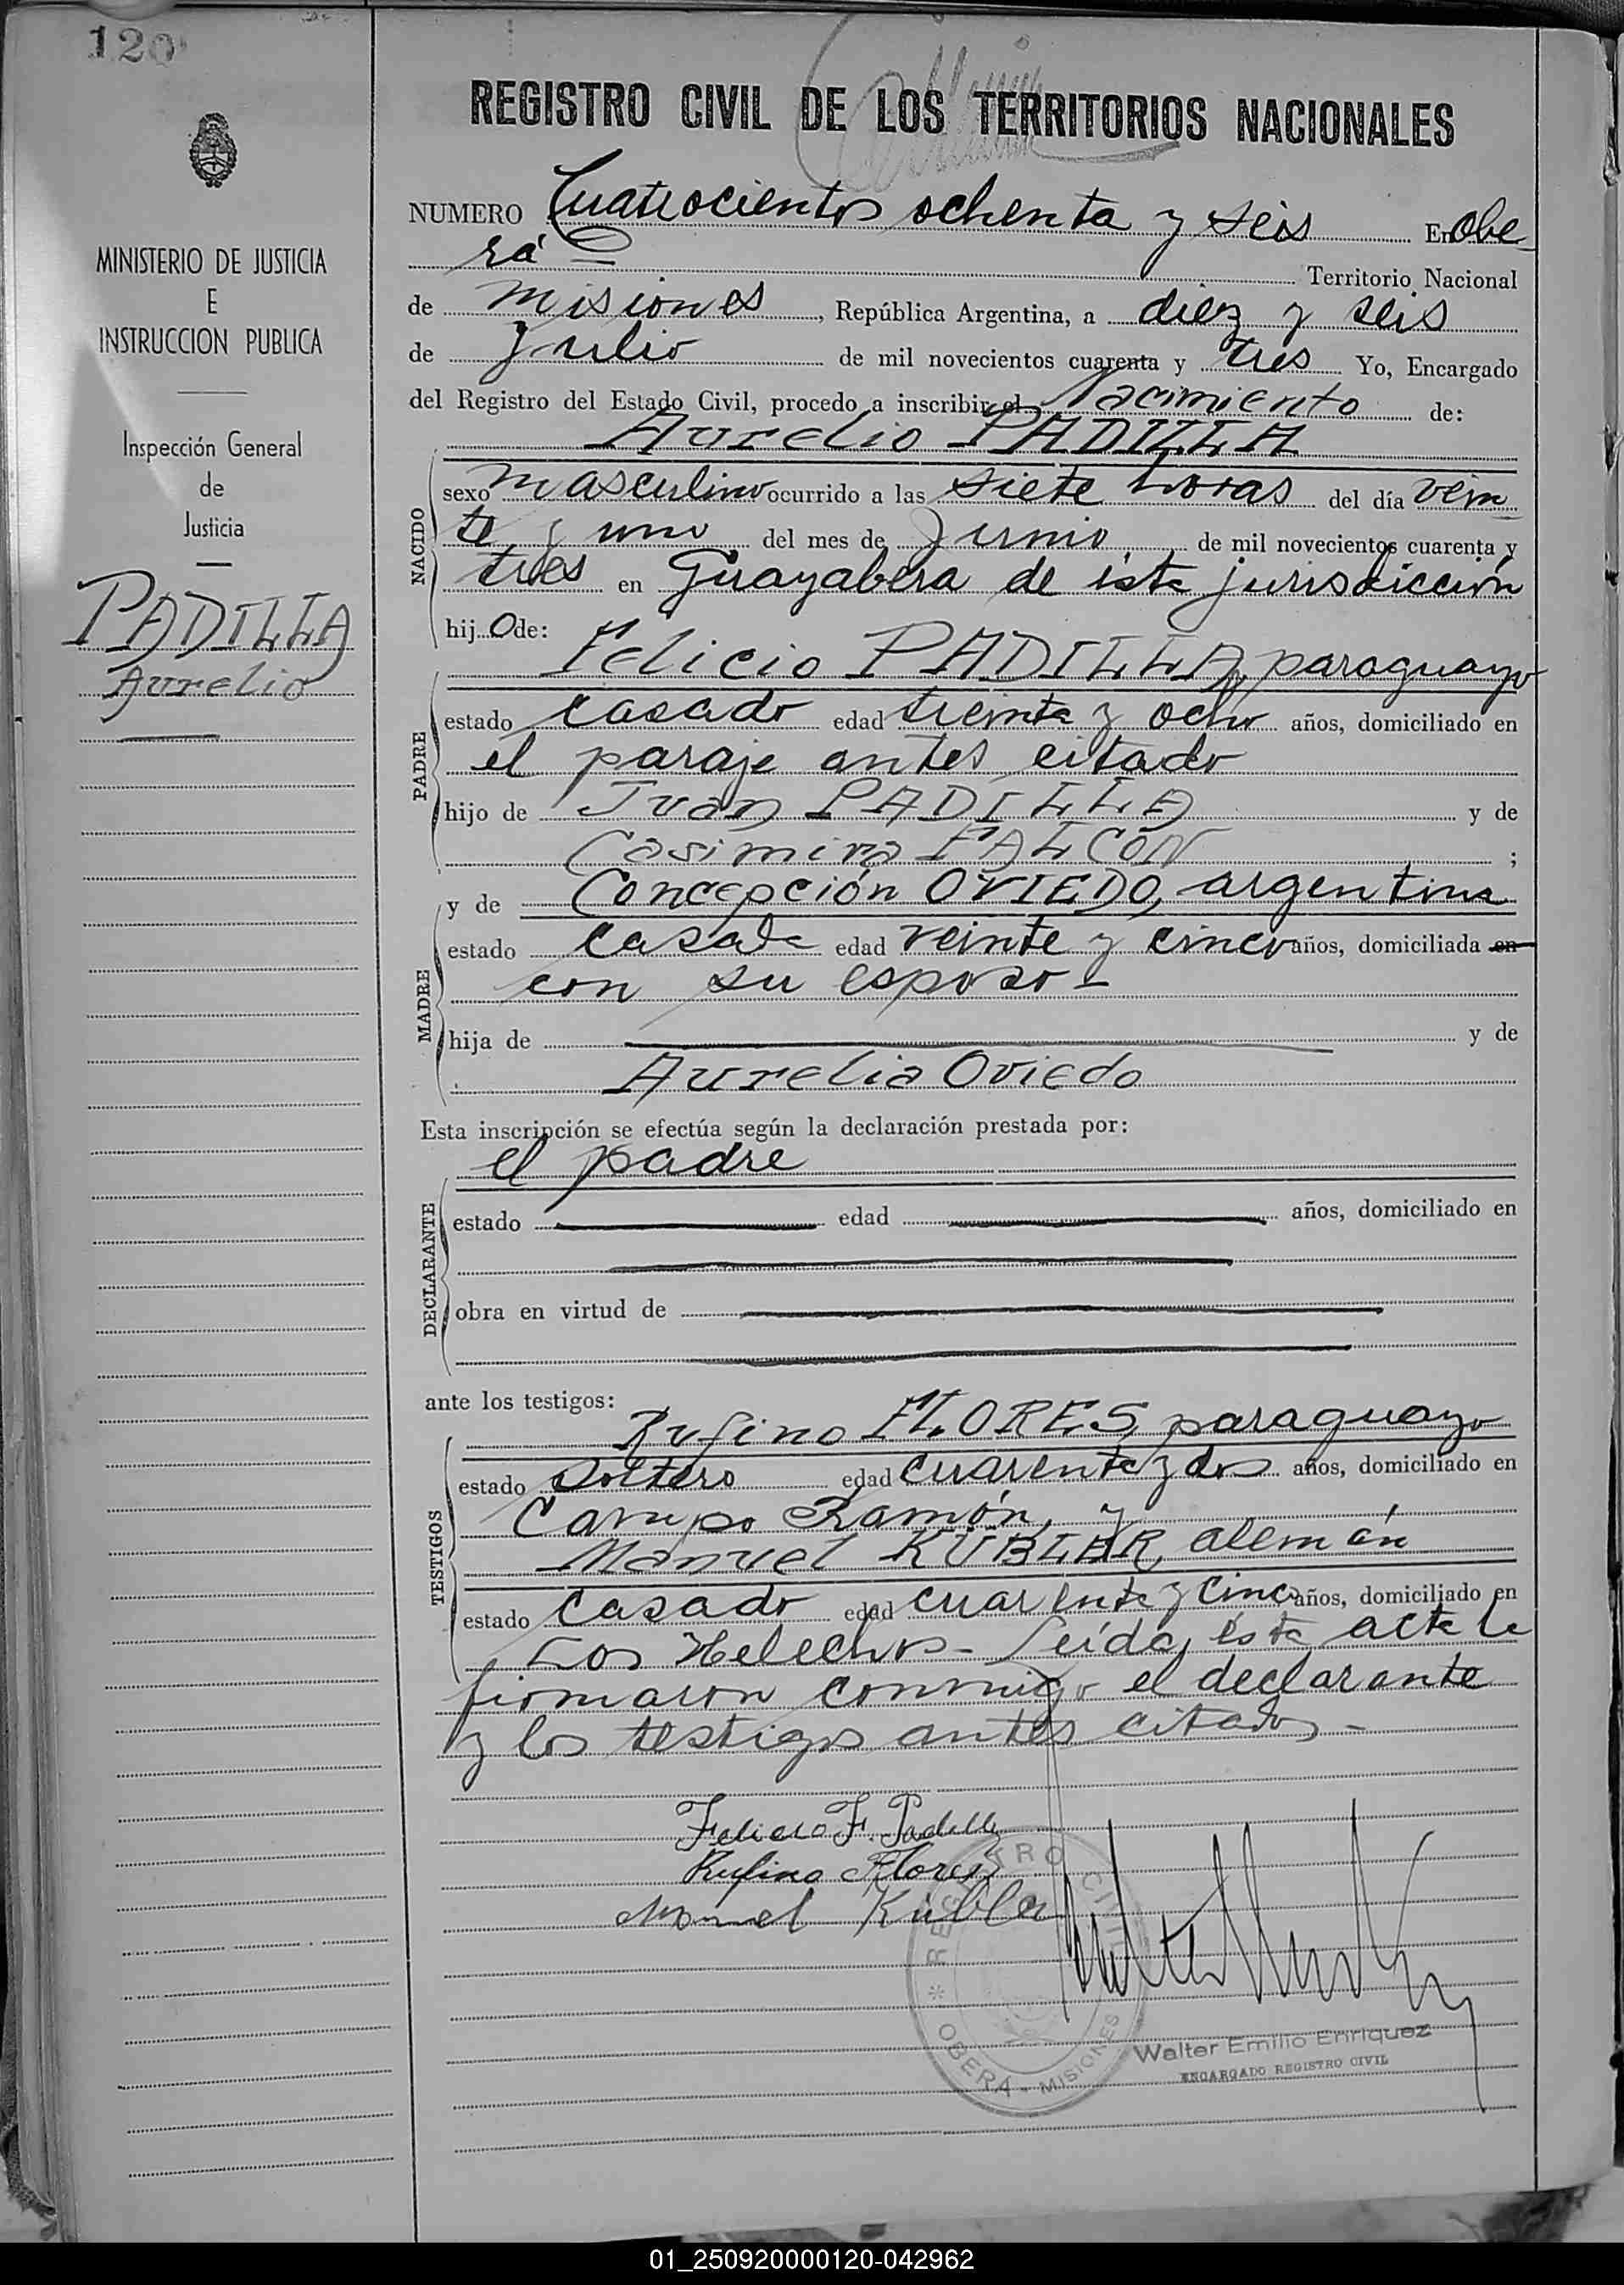 120
MINISTERIO DE JUSTICIA
E
INSTRUCCION PUBLICA
Inspección General
de
Justicia
PADILLA
Aurelio
REGISTRO CIVIL DE LOS TERRITORIOS NACIONALES
NUMERO Cuatrocientos ochenta y seis En Obe-
rá Territorio Nacional
de Misiones, República Argentina, a diez y seis
de Julio de mil novecientos cuarenta y tres Yo, Encargado
del Registro del Estado Civil, procedo a inscribir el Nacimiento de:
Aurelio PADILLA
NACIDO
sexo masculino ocurrido a las siete horas del día vein
te y uno del mes de Junio de mil novecientos cuarenta y
tres en Guayabera de ésta jurisdicción
hijo de:
Felicio PADILLA, paraguayo
PADRE
estado casado edad treinta y ocho años, domiciliado en
el paraje antes citado
hijo de Juan PADILLA y de
Casimira FALCÓN ;
y de Concepción OVIEDO, argentina
MADRE
estado casada edad veinte y cinco años, domiciliada en
con su esposo -
hija de y de
Aurelia Oviedo
Esta inscripción se efectúa según la declaración prestada por:
el padre
DECLARANTE
estado edad años, domiciliado en
obra en virtud de
ante los testigos:
Rufino FLORES, paraguayo
TESTIGOS
estado soltero edad cuarenta y dos años, domiciliado en
Campo Ramón, y
Manuel KÜBLER, alemán
estado casado edad cuarenta y cinco años, domiciliado en
Los Helechos - Leída ésta acta la
firmaron conmigo el declarante
y los testigos antes citados -
Felicio F. Padilla
Rufino Flores
Manuel Kübler
REGISTRO CIVIL
OBERA - MISIONES
Walter Emilio Enriquez
ENCARGADO REGISTRO CIVIL
01_250920000120-042962